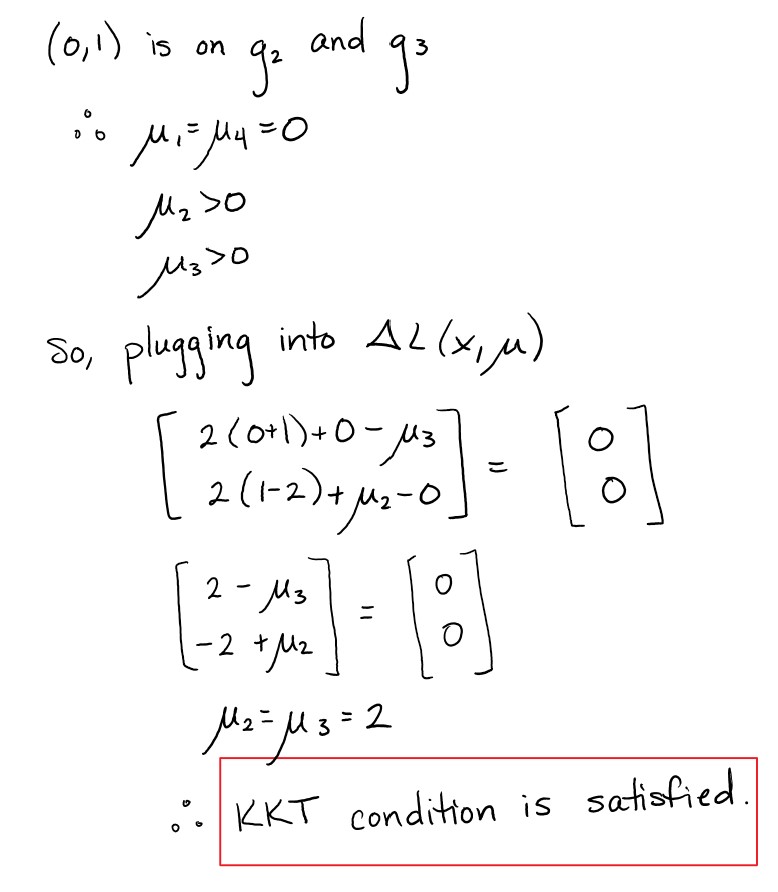 (0,1) is on g₂ and g₃
∴ μ₁=μ₄=0
μ₂>0
μ₃>0
So, plugging into ΔL(x,μ)
[2(0+1)+0-μ₃
2(1-2)+μ₂-0] = [0
0]
[2-μ₃
-2+μ₂] = [0
0]
μ₂=μ₃=2
∴ KKT condition is satisfied.